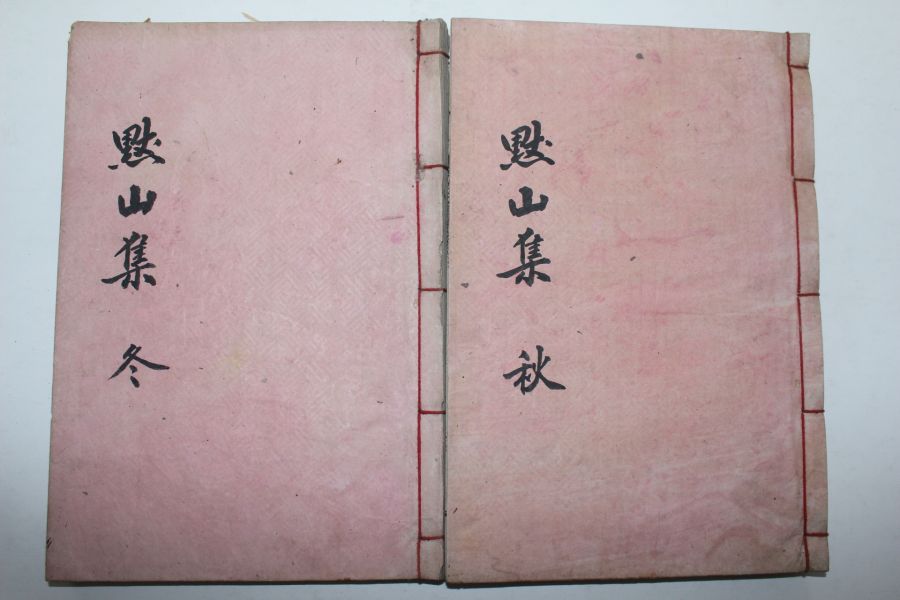 默山集 冬
默山集 秋